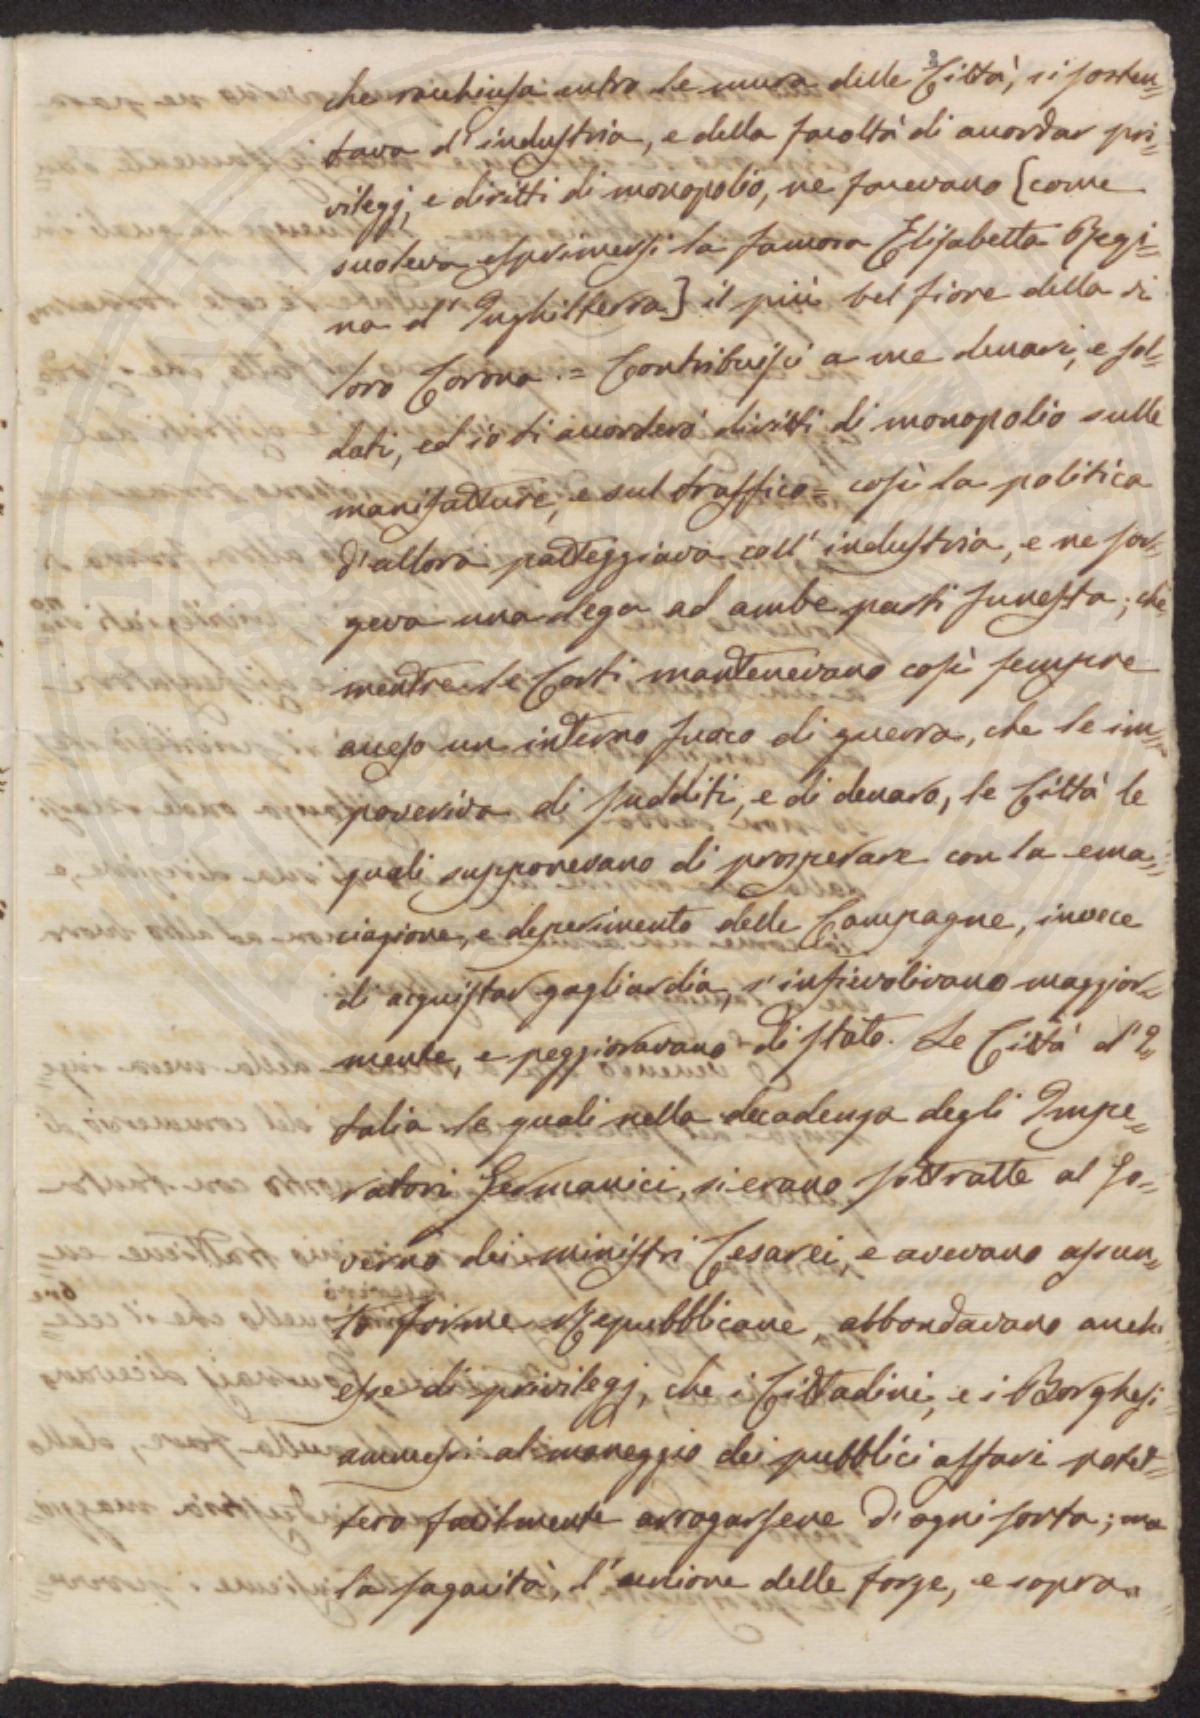 che racchiusa entro le mura delle Città, si sosten=
tava d'industria, e della facoltà di accordar pri=
vilegj, e diritti di monopolio, ne facevano [come
soleva esprimersi la famosa Elisabetta Regi=
na d'Inghilterra] il più bel fiore della di
loro Corona. = Contribuisci a me denari, e sol=
dati, ed io ti accorderò diritti di monopolio sulle
manifatture, e sul traffico = così la politica
d'allora patteggiava coll'industria, e ne sor=
geva una lega ad ambe parti funesta; che
mentre le Corti mantenevano così sempre
acceso un interno fuoco di guerra, che le im=
poveriva di sudditi, e di denaro, le Città le
quali supponevano di prosperare con la ema=
ciazione, e deperimento delle Campagne, invece
di acquistar gagliardia, s'infievolivano maggior=
mente, e peggioravano di stato. Le Città d'I=
talia le quali nella decadenza degli Impe=
ratori Germanici, si erano sottratte al Go=
verno dei ministri Cesarei, e avevano assun=
to forme Repubblicane, abbondavano anch'
esse di privilegj, che i Cittadini, e i Borghesi
ammessi al maneggio dei pubblici affari potet=
tero facilmente arrogarsene d'ogni sorta; ma
la sagacità, l'unione delle forze, e sopra=